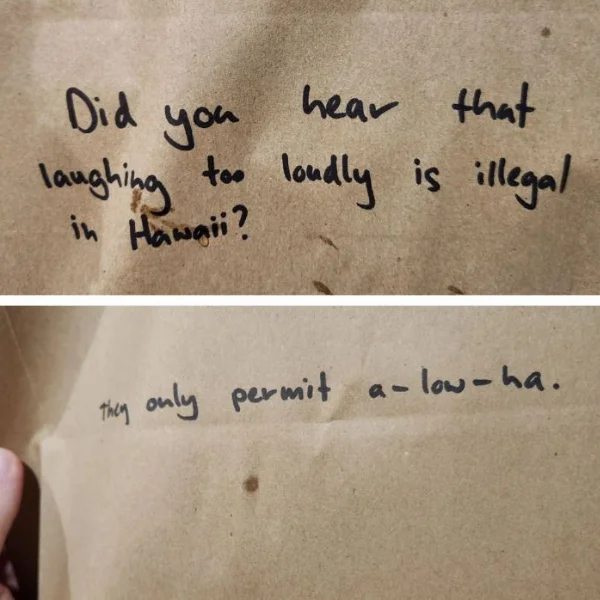 Did you hear that
laughing too loudly is illegal
in Hawaii?
they only permit a-low-ha.